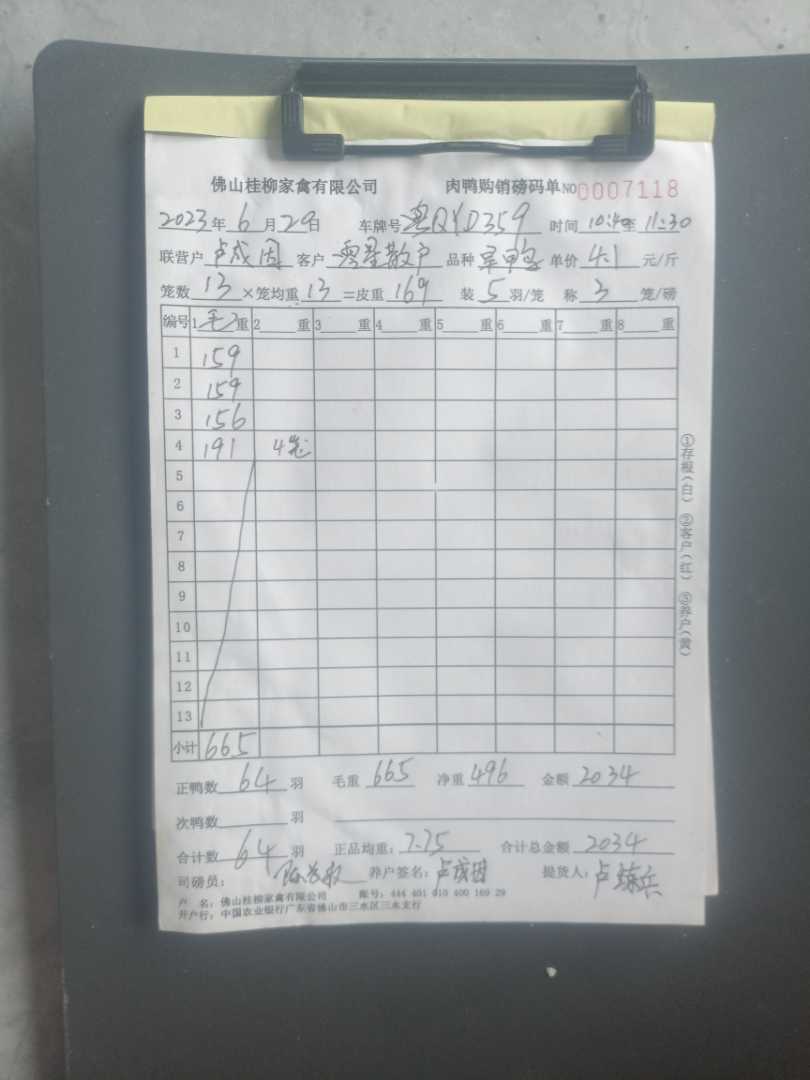 佛山桂柳家禽有限公司 肉鸭购销磅码单 NO 0007118
2023年 6 月 29 日 车牌号 粤QYD359 时间 10:40至 11:30
联营户 卢成因 客户 零星散户 品种 单价 4.1 元/斤
笼数 13 ×笼均重 13 =皮重 169 装 5 羽/笼 称 3 笼/磅
编号 1 毛 重 2 重 3 重 4 重 5 重 6 重 7 重 8 重
1 159
2 159
3 156
4 191 4笼
5
6
7
8
9
10
11
12
13
小计 665
正鸭数 64 羽 毛重 665 净重 496 金额 2034
次鸭数 羽
合计数 64 羽 正品均重: 7.75 合计总金额 2034
司磅员: 养户签名: 卢成因 提货人: 卢
户 名: 佛山桂柳家禽有限公司 账号: 444 401 010 400 169 29
开户行: 中国农业银行广东省佛山市三水区三水支行
①存根(白) ②客户(红) ③养户(黄)